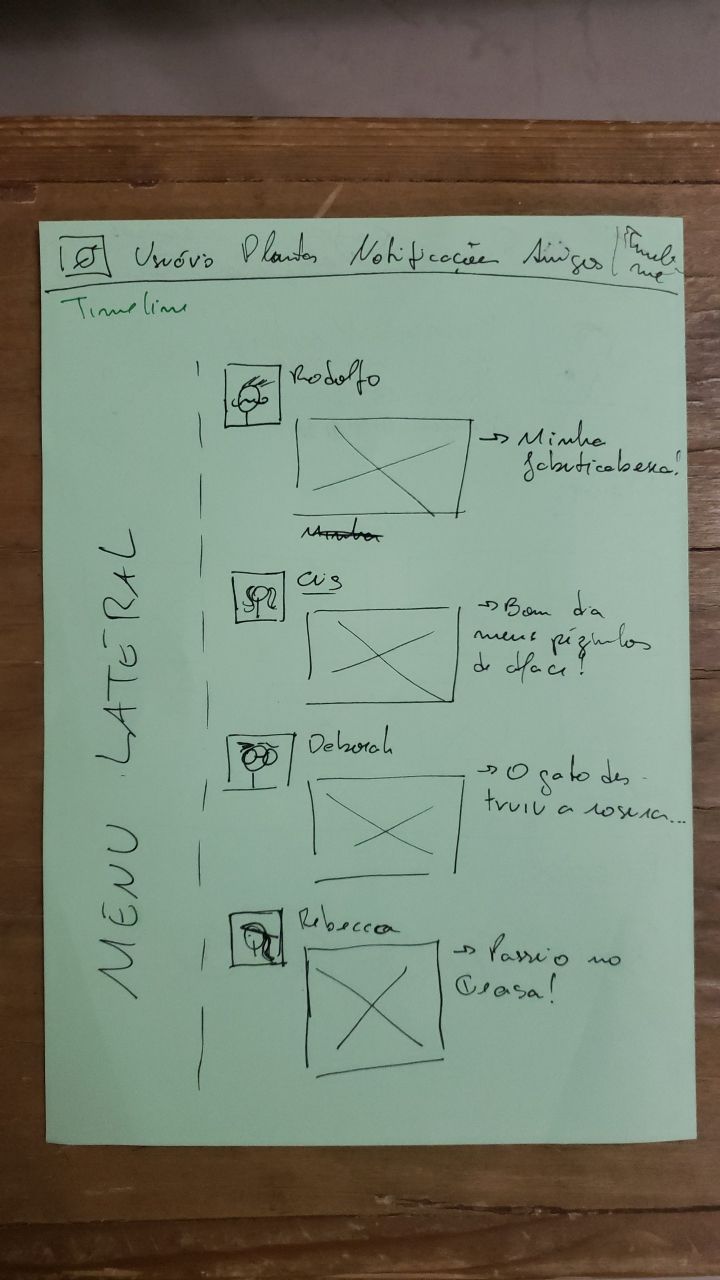 Usuário Plantas Notificações Amigos Timeli-
ne
Timeline
MENU LATERAL
Rodolfo
→ Minha
jabuticabeira!
Minha
Cris
→ Bom dia
meus pézinhos
de alface!
Deborah
→ O gato des-
truiu a roseira...
Rebecca
→ Passeio no
Ceasa!